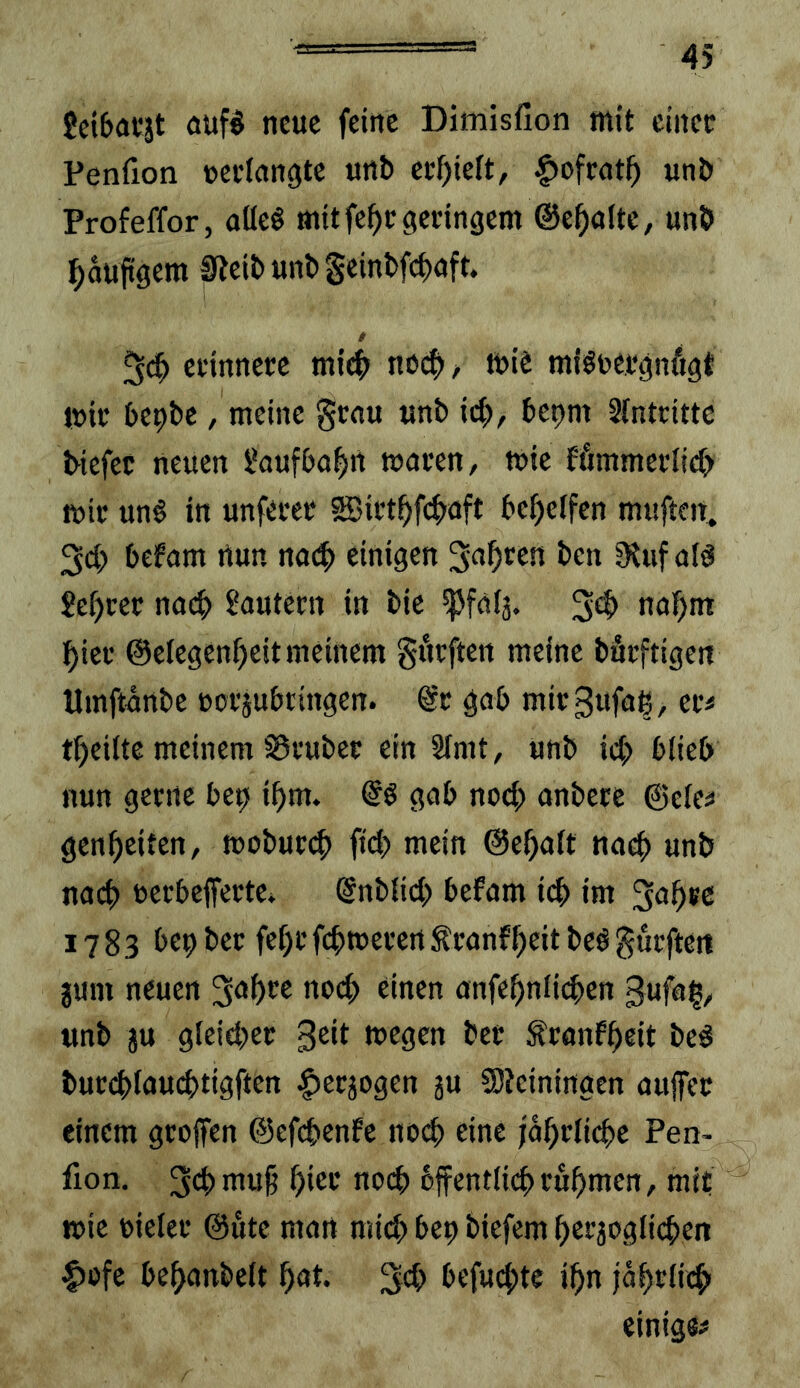 45
Leibarzt aufs neue seine Dimission mit einer
Pension verlangte und erhielt, Hofrath und
Professor, alles mit sehr geringem Gehalte, und
häufigem Neid und Feindschaft.
Ich erinnere mich noch, wie misvergnügt
wir beyde, meine Frau und ich, beym Antritte
dieser neuen Laufbahn waren, wie kümmerlich
wir uns in unserer Wirthschaft behelfen musten.
Ich bekam nun nach einigen Jahren den Ruf als
Lehrer nach Lautern in die Pfalz. Ich nahm
hier Gelegenheit meinem Fürsten meine dürftigen
Umstände vorzubringen. Er gab mir Zusatz, er-
theilte meinem Bruder ein Amt, und ich blieb
nun gerne bey ihm. Es gab noch andere Gele-
genheiten, wodurch sich mein Gehalt nach und
nach verbesserte. Endlich bekam ich im Jahre
1783 bey der sehr schweren Krankheit des Fürsten
zum neuen Jahre noch einen ansehnlichen Zusatz,
und zu gleicher Zeit wegen der Krankheit des
durchlauchtigsten Herzogen zu Meiningen ausser
einem grossen Geschenke noch eine jährliche Pen-
sion. Ich muß hier noch öffentlich rühmen, mit
wie vieler Güte man mich bey diesem herzoglichen
Hofe behandelt hat. Ich besuchte ihn jährlich
einige-